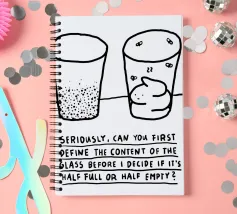 SERIOUSLY, CAN YOU FIRST
DEFINE THE CONTENT OF THE
GLASS BEFORE I DECIDE IF IT'S
HALF FULL OR HALF EMPTY?